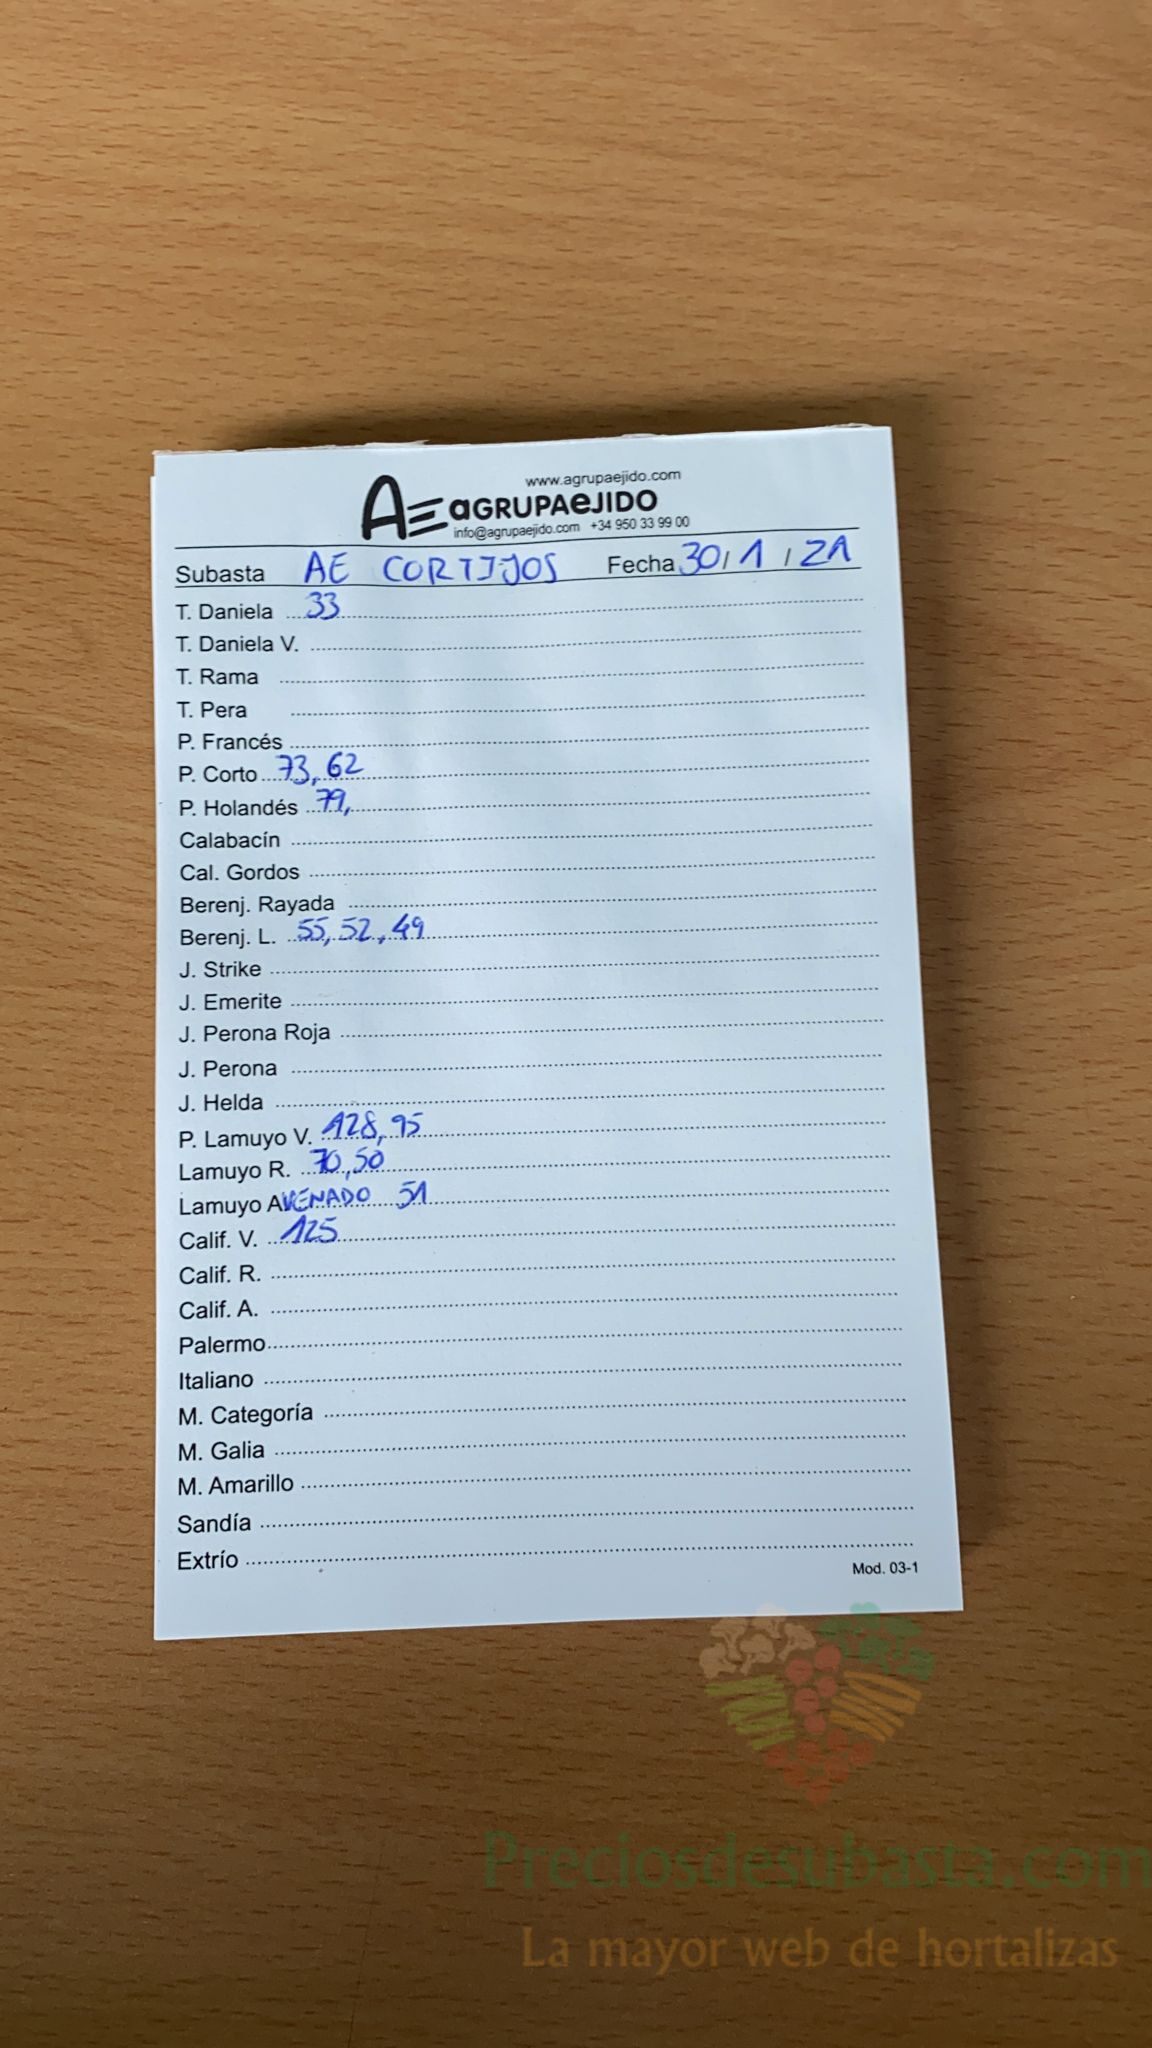 www.agrupaejido.com
AE aGRUPAeJIDO
info@agrupaejido.com +34 950 33 99 00
Subasta AE CORTIJOS Fecha 30/1/21
T. Daniela 33
T. Daniela V.
T. Rama
T. Pera
P. Francés
P. Corto 73, 62
P. Holandés 79,
Calabacín
Cal. Gordos
Berenj. Rayada
Berenj. L. 55, 52, 49
J. Strike
J. Emerite
J. Perona Roja
J. Perona
J. Helda
P. Lamuyo V. 128, 95
Lamuyo R. 70, 50
Lamuyo A VENADO 51
Calif. V. 125
Calif. R.
Calif. A.
Palermo
Italiano
M. Categoría
M. Galia
M. Amarillo
Sandía
Extrío
Mod. 03-1
Preciosdesubasta.com
La mayor web de hortalizas